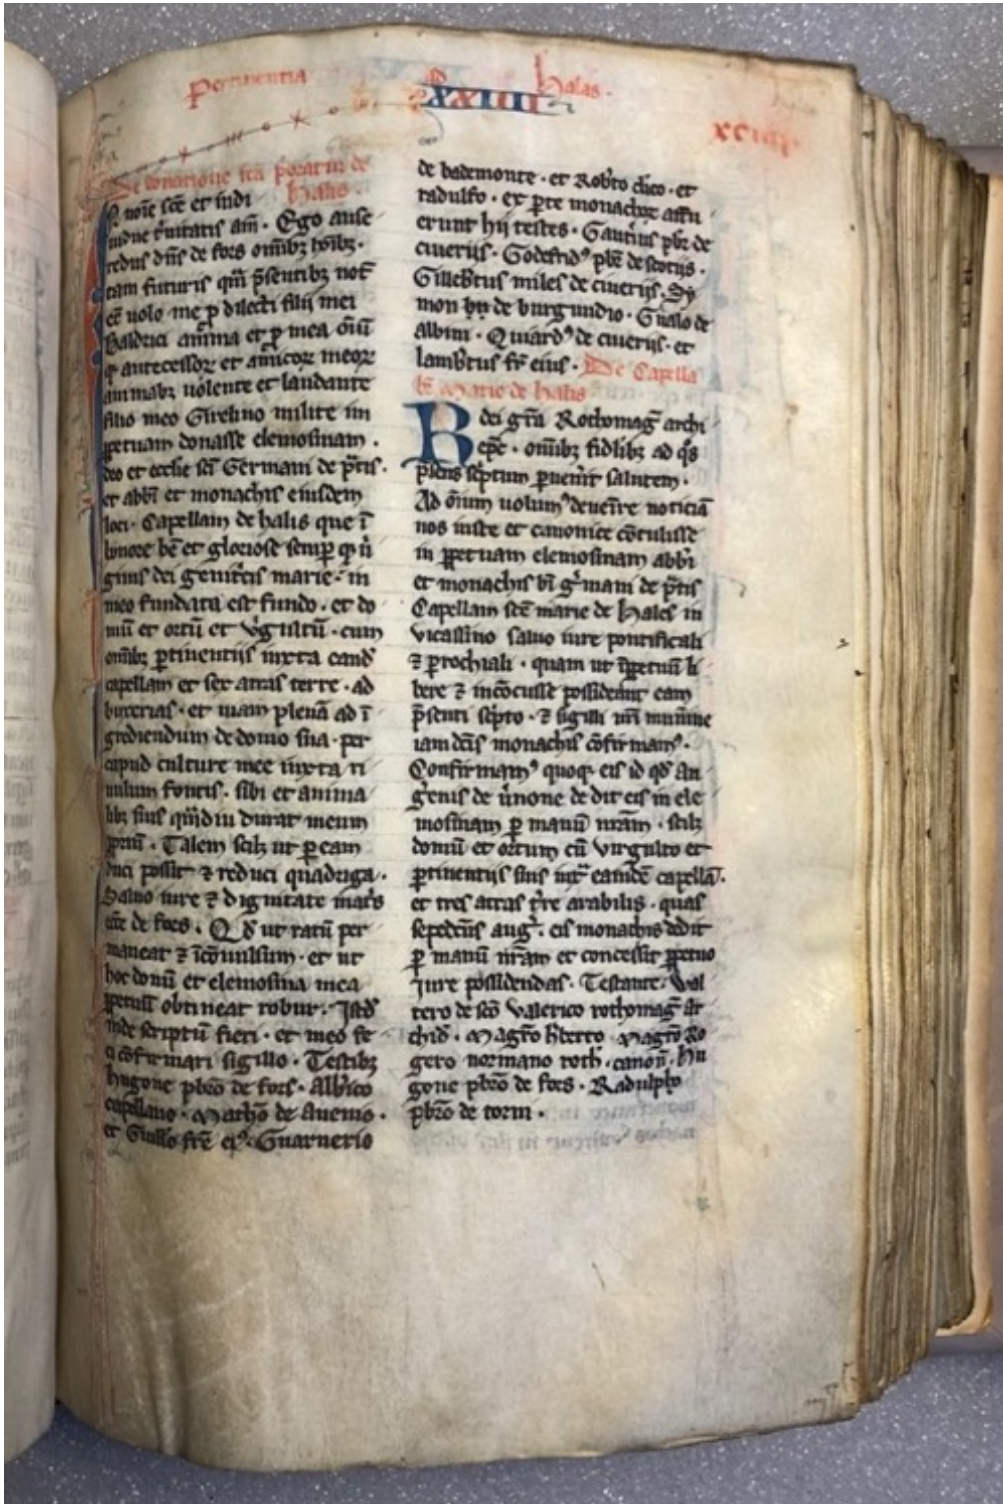 Pertinentia ad halas.
XXIIII
xciiii
De donatione sca p̃oratui de
halis.
I nõie scẽ et indi
uidue t̾nitatis am̃. Ego anse
redus dñs de fors om̃ibꝫ hoĩbꝫ.
tam futuris qm̃ p̃sentibꝫ not̃
eẽ uolo me ꝓ dilecti filij mei
baldrici anĩma et ꝓ mea oĩu
qꝫ antecessoꝝ et amicoꝝ meoꝝ
animabꝫ uolente et laudante
filio meo Girelmo milite im
ꝑpetuam donasse elemosinam.
deo et ecclie scĩ Germani de p̃tis.
et abb̃i et monachis eiusdem
loci. Capellam de halis que ĩ
honore bẽ et gloriose semꝑ qꝫ ui
ginis dei genit̾cis marie. in
meo fundata est fundo. et do
mũ et ortũ et v̾gultũ. cum
om̃ibꝫ ꝑtinentijs iuxta eand̃
capellam et sex acras terre. ad
bucerias. et uiam plenã ad ĩ
grediendum de domo sua. per
capud culture mee iuxta ri
uulum fontis. sibi et anima
libꝫ suis qm̃diu durat meum
ꝓpriũ. Talem scilꝫ ut ꝑ eam
duci possit ⁊ reduci quadriga.
Saluo iure ⁊ dignitate mat̾s
ecc̃e de foes. Qd̃ ut ratũ per
maneat ⁊ ĩcõuulsum. et ut
hoc donũ et elemosina mea
ꝑpetuũ obtineat robur. Istd̾
inde scriptũ fieri. et meo fe
ci cõfirmari sigillo. Testibꝫ
hugone pb̃ro de fors. Alb̾ico
capellano. Math̃o de Auenis.
et Guill̃o fr̃e ei⁹. Guarnerio
de bademonte. et Rob̾to cl̃ico. et
radulfo. ex ꝑte monachoꝝ affu
erunt hij testes. Gaut̾ius pb̃r de
ciuerijs. Godefrid⁹ pb̃r de scotijs.
Gilleb̾tus miles de ciuerijs. Sy
mon de burgundio. Gualo de
albini. Quiard⁹ de ciuerijs. et
lamb̾tus fr̃ eius. De Capella
bẽ Marie de halis
R dei gr̃a Rothomaḡ archi
ep̃c. om̃ibꝫ fidlibꝫ ad q̾s
p̃sens sc̾ptum ꝑuen̾it salutem.
Ad om̃ium uolum⁹ deuenĩre noticiã
nos iuste et canonice cõtulisse
in ꝑpetuam elemosinam abb̃i
et monachis bĩ g̾mani de p̃tis
Capellam scẽ marie de Hales in
vicassino saluo iure pontificali
⁊ ꝑrochiali. quam ut ĩꝑpetuũ li
bere ⁊ incõcusse possideant eam
p̃senti sc̾pto. ⁊ sigilli nr̃i munime
iam dc̃is monachis cõfirmam⁹.
Confirmam⁹ quoqꝫ eis id qd̃ An
g̾enis de u̾none dedit eis in ele
mosinam ꝑ manũ nr̃am. scilꝫ
domũ et ortum cũ virgulto et
ꝑtinentijs suis iux̃ eamdẽ capellã.
et tres acras t̾re arabilis. quas
sepedc̃us aug̾. eis monachis dedit
ꝑ manũ nr̃am et concessit ꝑpetuo
iure possidendas. Testante. Wal
tero de scõ Valerico rothomaḡ ar
chid̃. Magr̃o h̾berto. Magr̃o Ro
gero normano roth̃. canoñ. Hu
gone pb̃ro de foes. Radulpho
pb̃ro de torni.